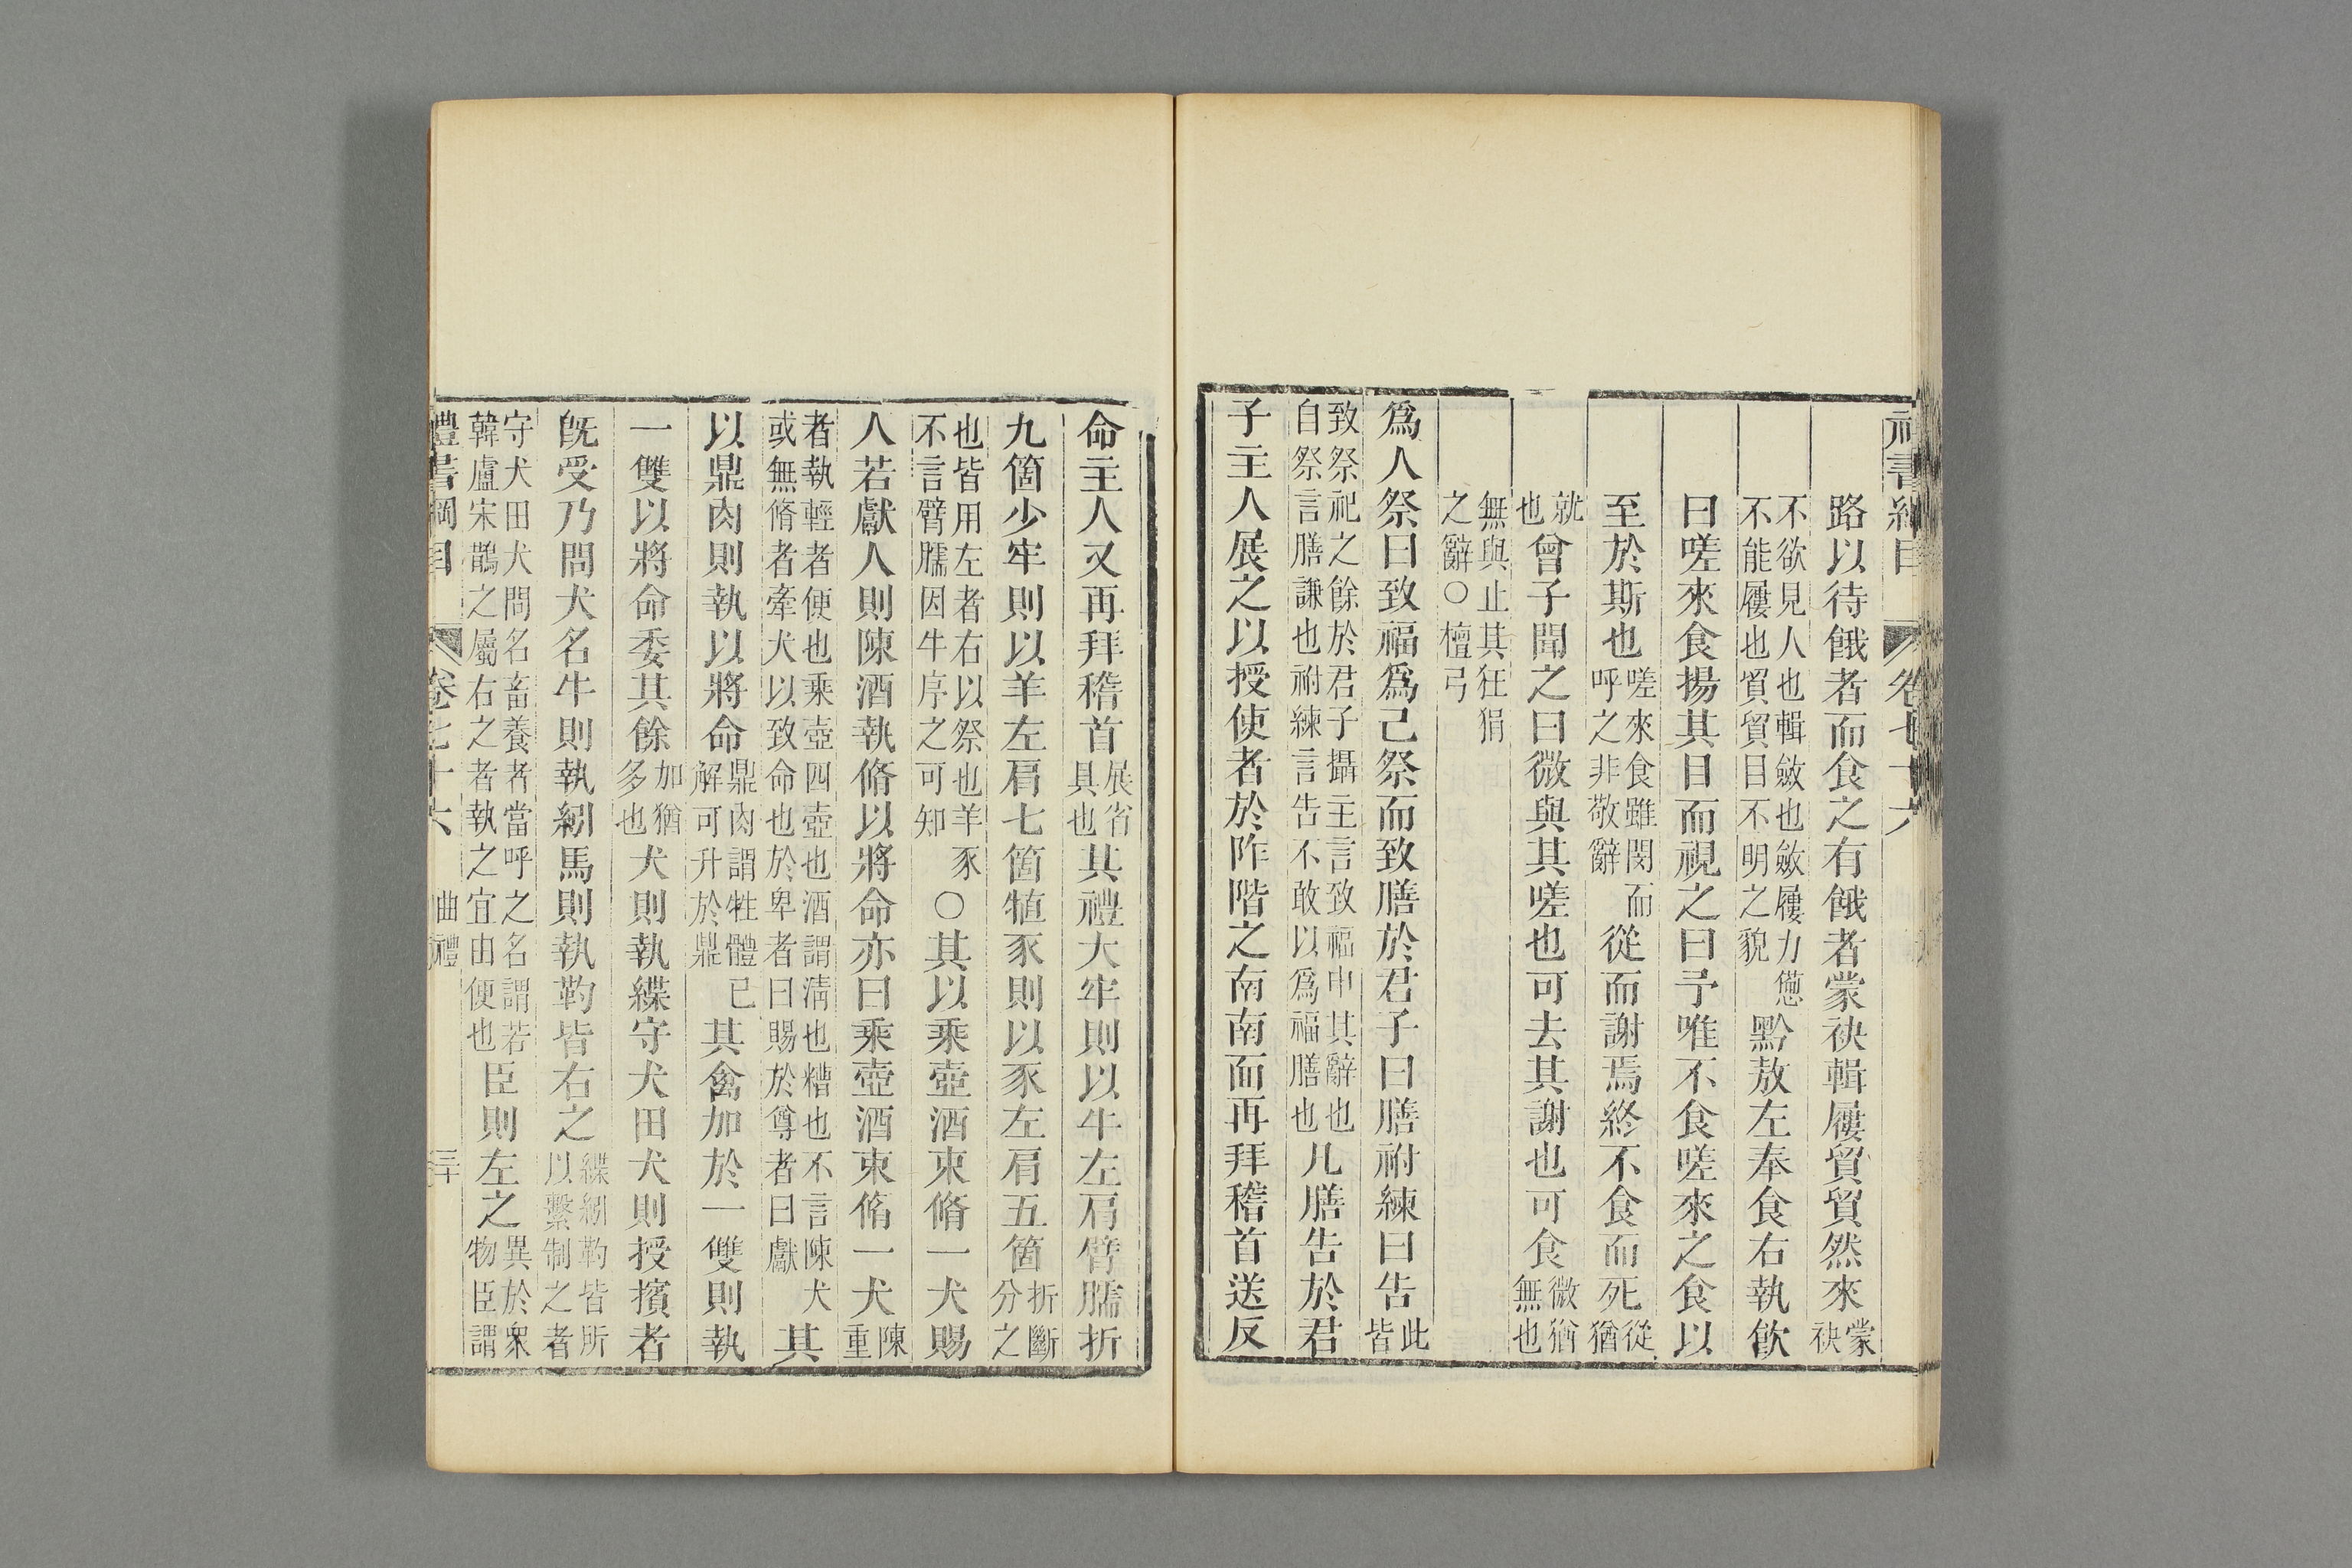 禮書綱目 卷七十六
路以待餓者而食之有餓者蒙袂輯屨貿貿然來蒙袂
不欲見人也輯斂也斂屨力憊不能屨也貿貿目不明之貌黔敖左奉食右執飲
曰嗟來食揚其目而視之曰予唯不食嗟來之食以
至於斯也嗟來食雖閔而呼之非敬辭從而謝焉終不食而死從猶
就也曾子聞之曰微與其嗟也可去其謝也可食微猶無也
無與止其狂狷之辭○檀弓
爲人祭曰致福爲己祭而致膳於君子曰膳祔練曰告此皆
致祭祀之餘於君子攝主言致福申其辭也自祭言膳謙也祔練言告不敢以爲福膳也凡膳告於君
子主人展之以授使者於阼階之南南面再拜稽首送反
命主人又再拜稽首展省具也其禮大牢則以牛左肩臂臑折
九箇少牢則以羊左肩七箇犆豕則以豕左肩五箇折斷分之
也皆用左者右以祭也羊豕不言臂臑因牛序之可知○其以乘壺酒束脩一犬賜
人若獻人則陳酒執脩以將命亦曰乘壺酒束脩一犬陳重
者執輕者便也乘壺四壺也酒謂淸也糟也不言陳犬或無脩者牽犬以致命也於卑者曰賜於尊者曰獻其
以鼎肉則執以將命鼎肉謂牲體已解可升於鼎其禽加於一雙則執
一雙以將命委其餘加猶多也犬則執緤守犬田犬則授擯者
旣受乃問犬名牛則執紖馬則執靮皆右之緤紖靮皆所以繫制之者
守犬田犬問名畜養者當呼之名謂若韓盧宋鵲之屬右之者執之宜由便也臣則左之異於衆物臣謂
禮書綱目 卷七十六 曲禮 三十